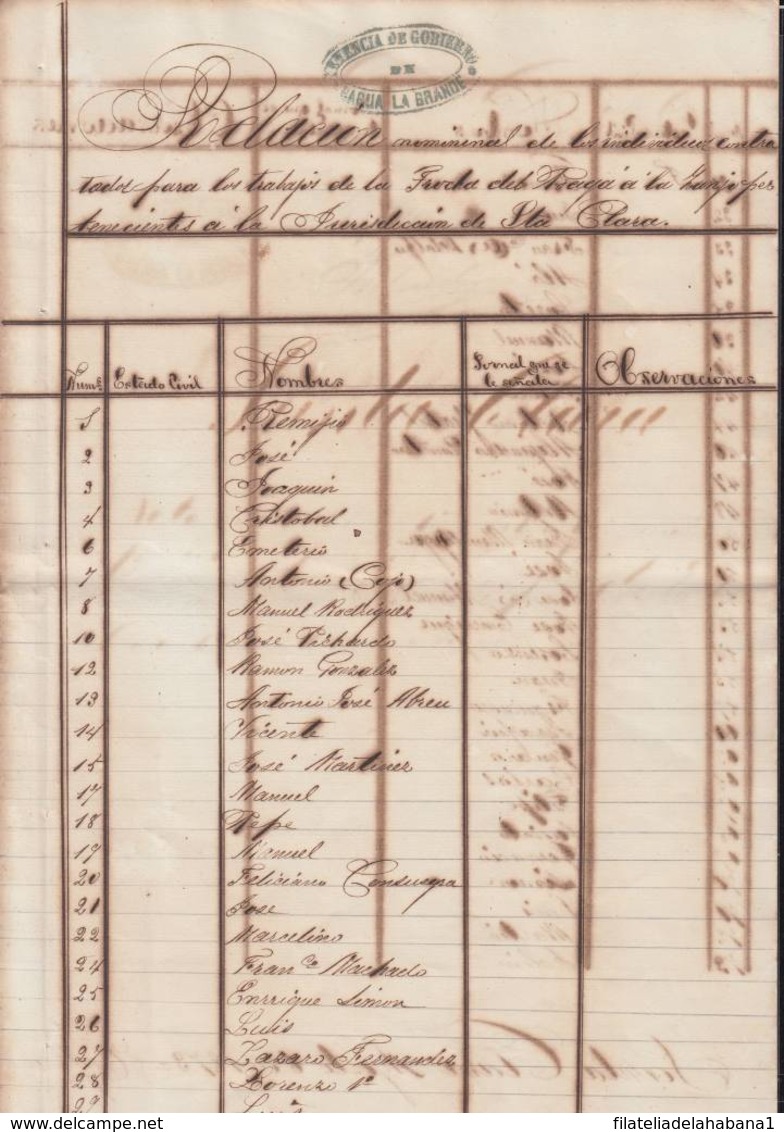 TENENCIA DE GOBIERNO
DE
SAGUA LA GRANDE
Relacion nominenal de los individuos contra
tados para los trabajos de la Trocha del Bagá á la Zanja per
tenecientes á la Jurisdiccion de Sta Clara.
Num.s Estado Civil Nombres Jornal que se le señala Observaciones
1 Remijio
2 José
3 Joaquin
4 Cristobal
6 Emeterio
7 Antonio (Cojo)
8 Manuel Rodriguez
10 José Pichardo
12 Ramon Gonzalez
13 Antonio José Abreu
14 Vicente
15 José Martinez
17 Manuel
18 Pepe
19 Manuel
20 Feliciano Consuegra
21 Jose
22 Marcelino
24 Fran.co Machado
25 Enrrique Simon
26 Luis
27 Lazaro Fernandez
28 Lorenzo 1º
29 Luis
filateliadelahabana1